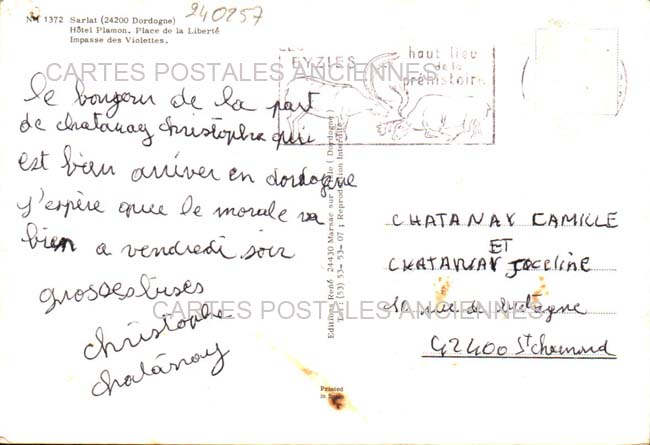 240257
N-M 1372 Sarlat (24200 Dordogne)
Hôtel Plamon. Place de la Liberté
Impasse des Violettes.
LES
EYZIES
haut lieu
de la
préhistoire
CARTES POSTALES ANCIENNES
le bonjour de la part
de chatanay christophe qui
est bien arriver en dordogne
j'espère que le morale va
bien a vendredi soir
grosses bises
christophe
chatanay
Edition René 24430 Marsac sur l'Isle ( Dordogne )
Tél: (53) 53-53-07 ; Reproduction Interdite
CHATANAY CAMILLE
ET
CHATANAY JOCELINE
rue de bretagne
42400 St chamond
CARTES POSTALES ANCIENNES
Printed
in Spain